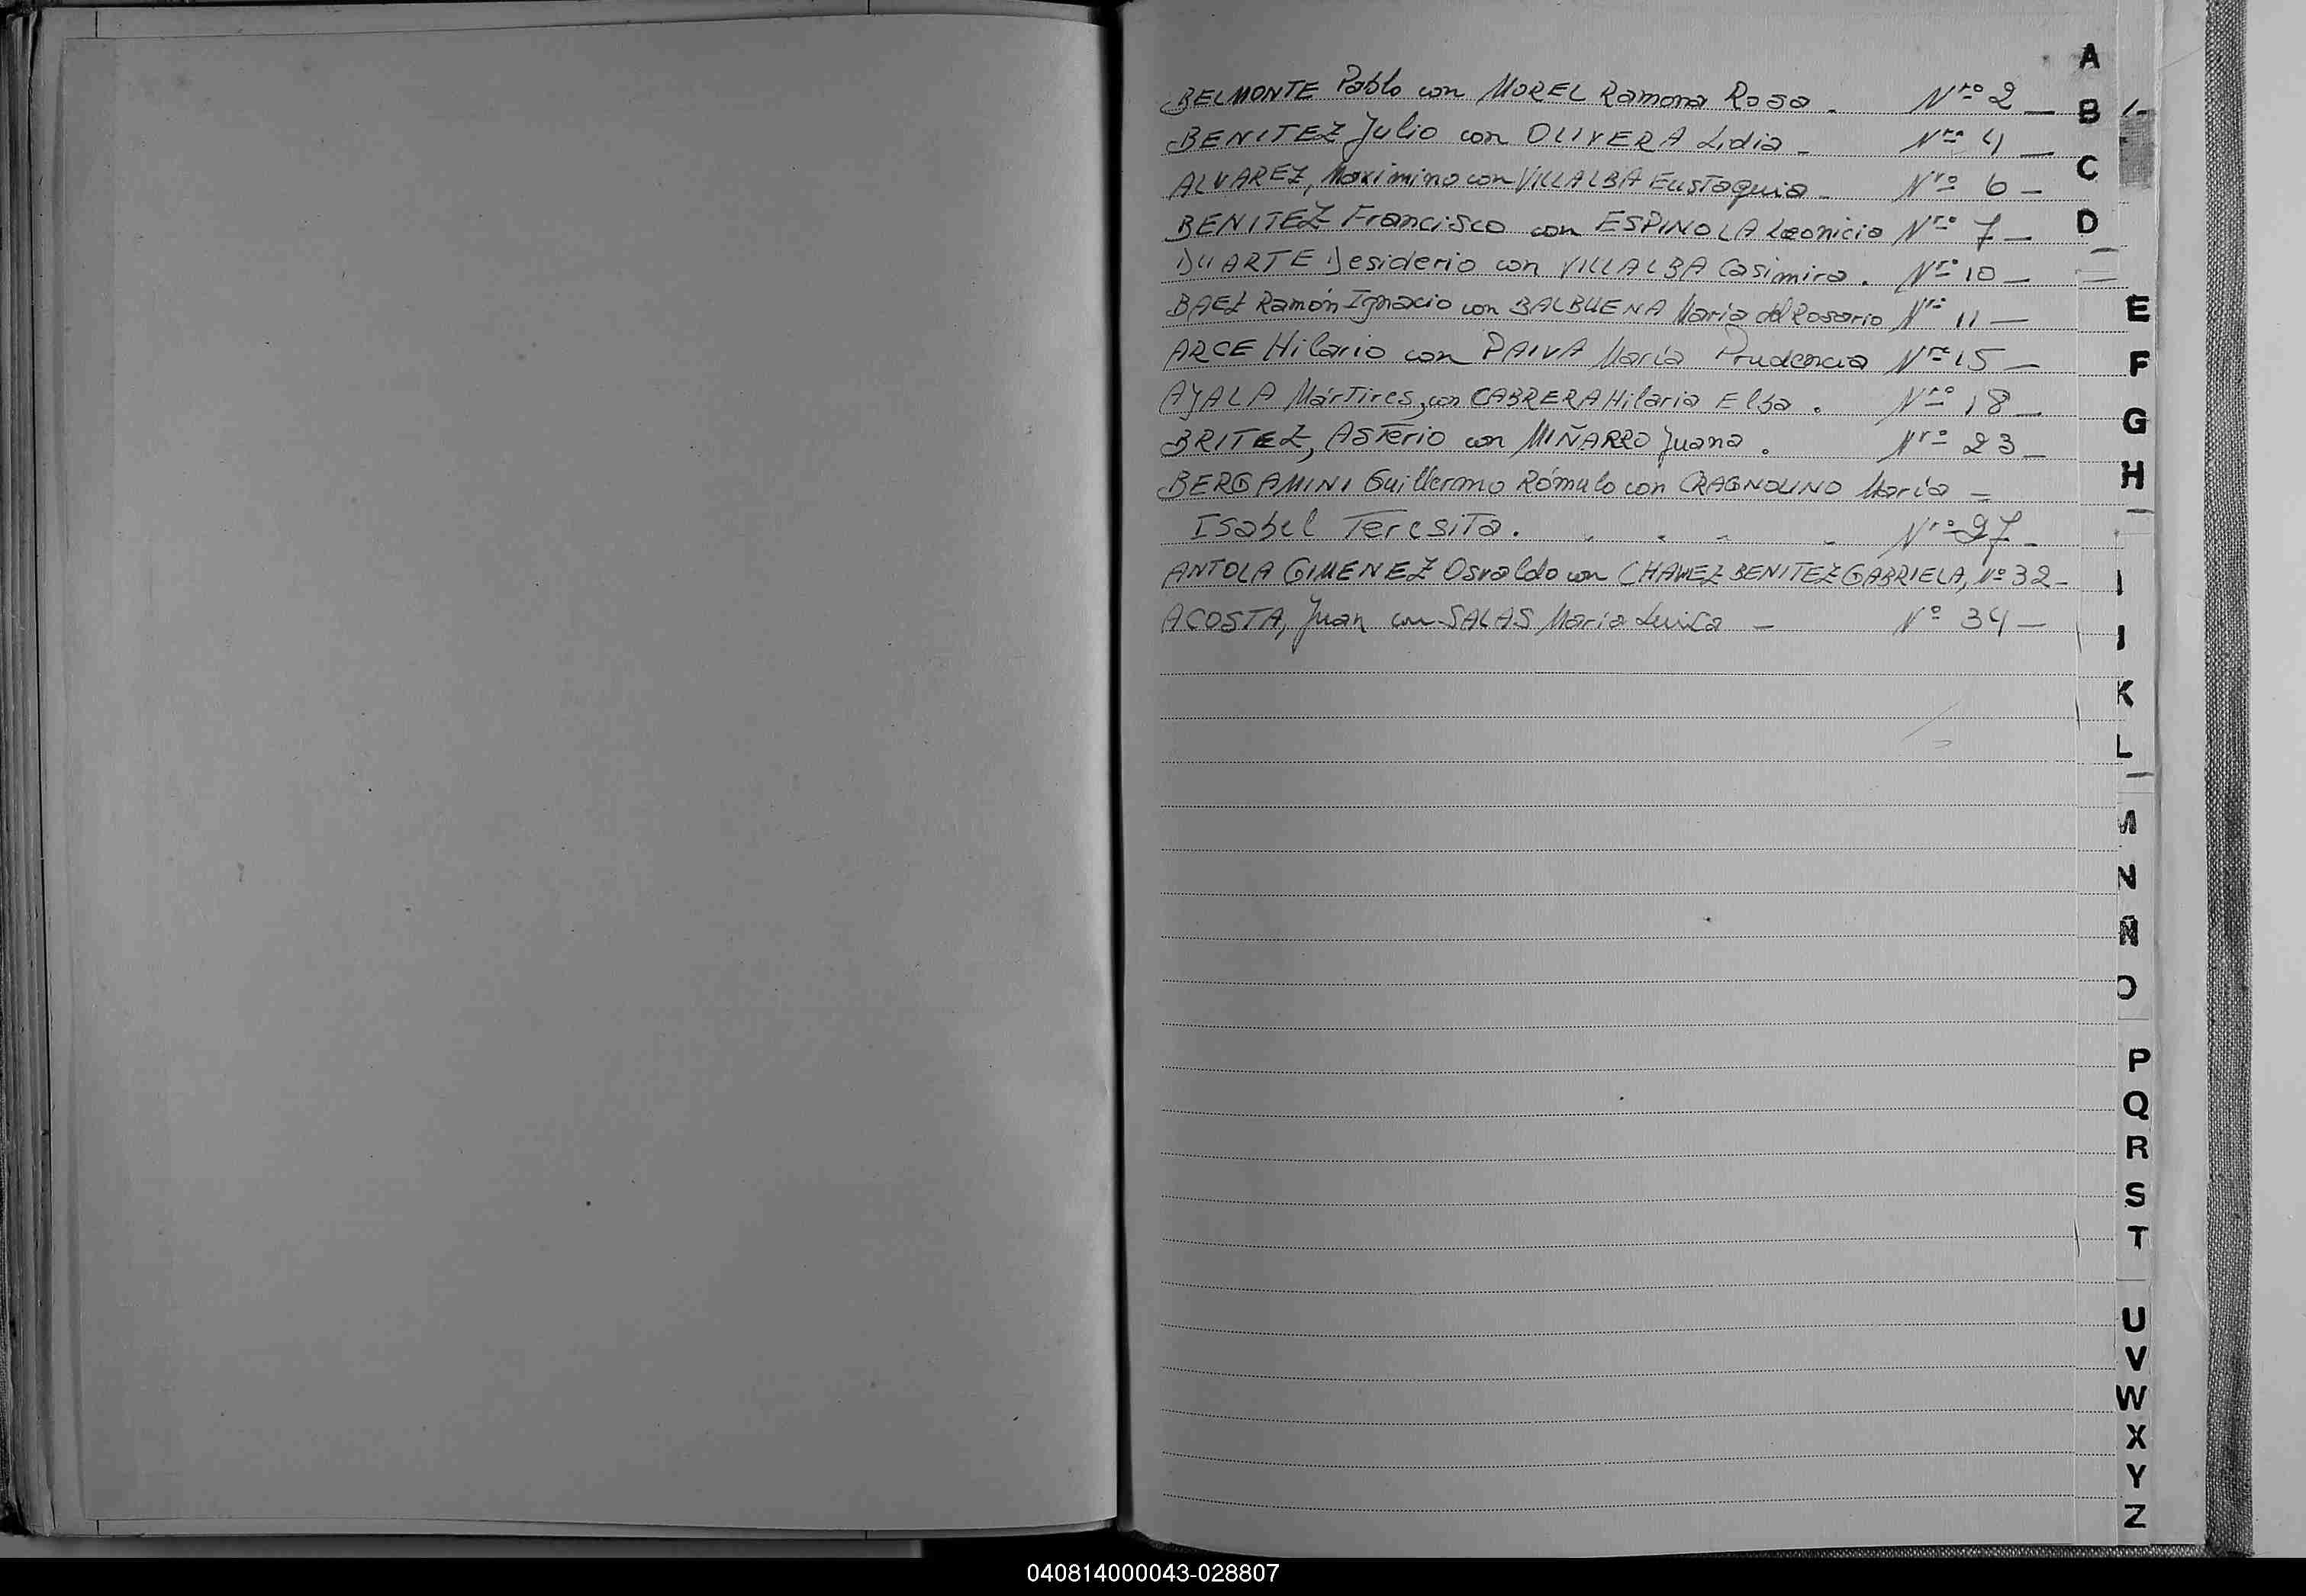 BELMONTE Pablo con MOREL Ramona Rosa. Nro 2 —
BENITEZ Julio con OLIVERA Lidia - Nro 4 —
ALVAREZ, Maximino con VILLALBA Eustaquia - Nro 6 -
BENITEZ Francisco con ESPINOLA Leonicia Nro 7 -
DUARTE Desiderio con VILLALBA Casimira. Nro 10 -
BAEZ Ramón Ignacio con BALBUENA María del Rosario Nro 11 —
ARCE Hilario con PAIVA María Prudencia Nro 15 —
AYALA Mártires, con CABRERA Hilaria Elba. Nro 18 -
BRITEZ, Asterio con MIÑARRO Juana. Nro 23 -
BERGAMINI Guillermo Rómulo con CRAGNOLINO María -
Isabel Teresita. Nro 27 -
ANTOLA GIMENEZ Osvaldo con CHAVEZ BENITEZ GABRIELA, Nº 32 -
ACOSTA, Juan con SALAS María Luisa - Nº 34 —
A
B
C
D
E
F
G
H
I
J
K
L
M
N
Ñ
O
P
Q
R
S
T
U
V
W
X
Y
Z
040814000043-028807